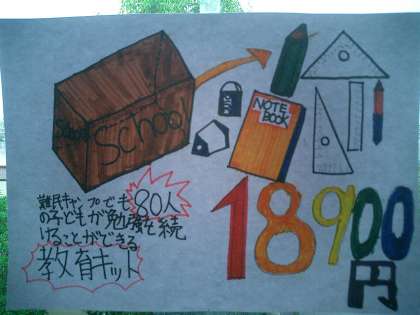 School
School
NOTE
BOOK
難民キャンプでも80人
の子どもが勉強を続
けることができる
教育キット
18900
円